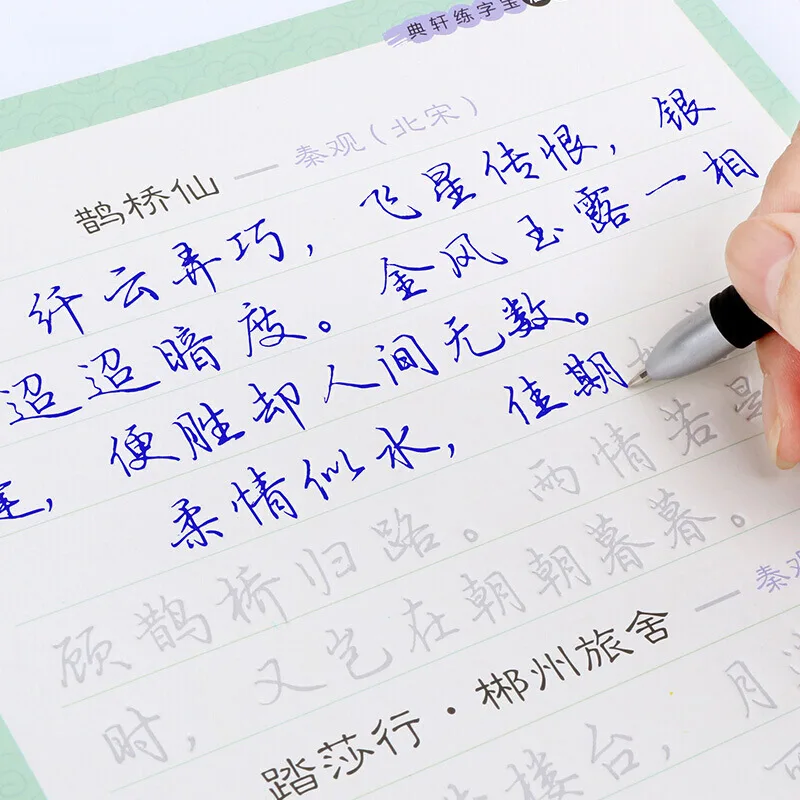 典轩练字宝
鹊桥仙 — 秦观（北宋）
纤云弄巧，飞星传恨，银
迢迢暗度。金风玉露一相
逢，便胜却人间无数。
柔情似水，佳期
顾鹊桥归路。两情若是
时，又岂在朝朝暮暮。
踏莎行·郴州旅舍 — 秦观
楼台，月